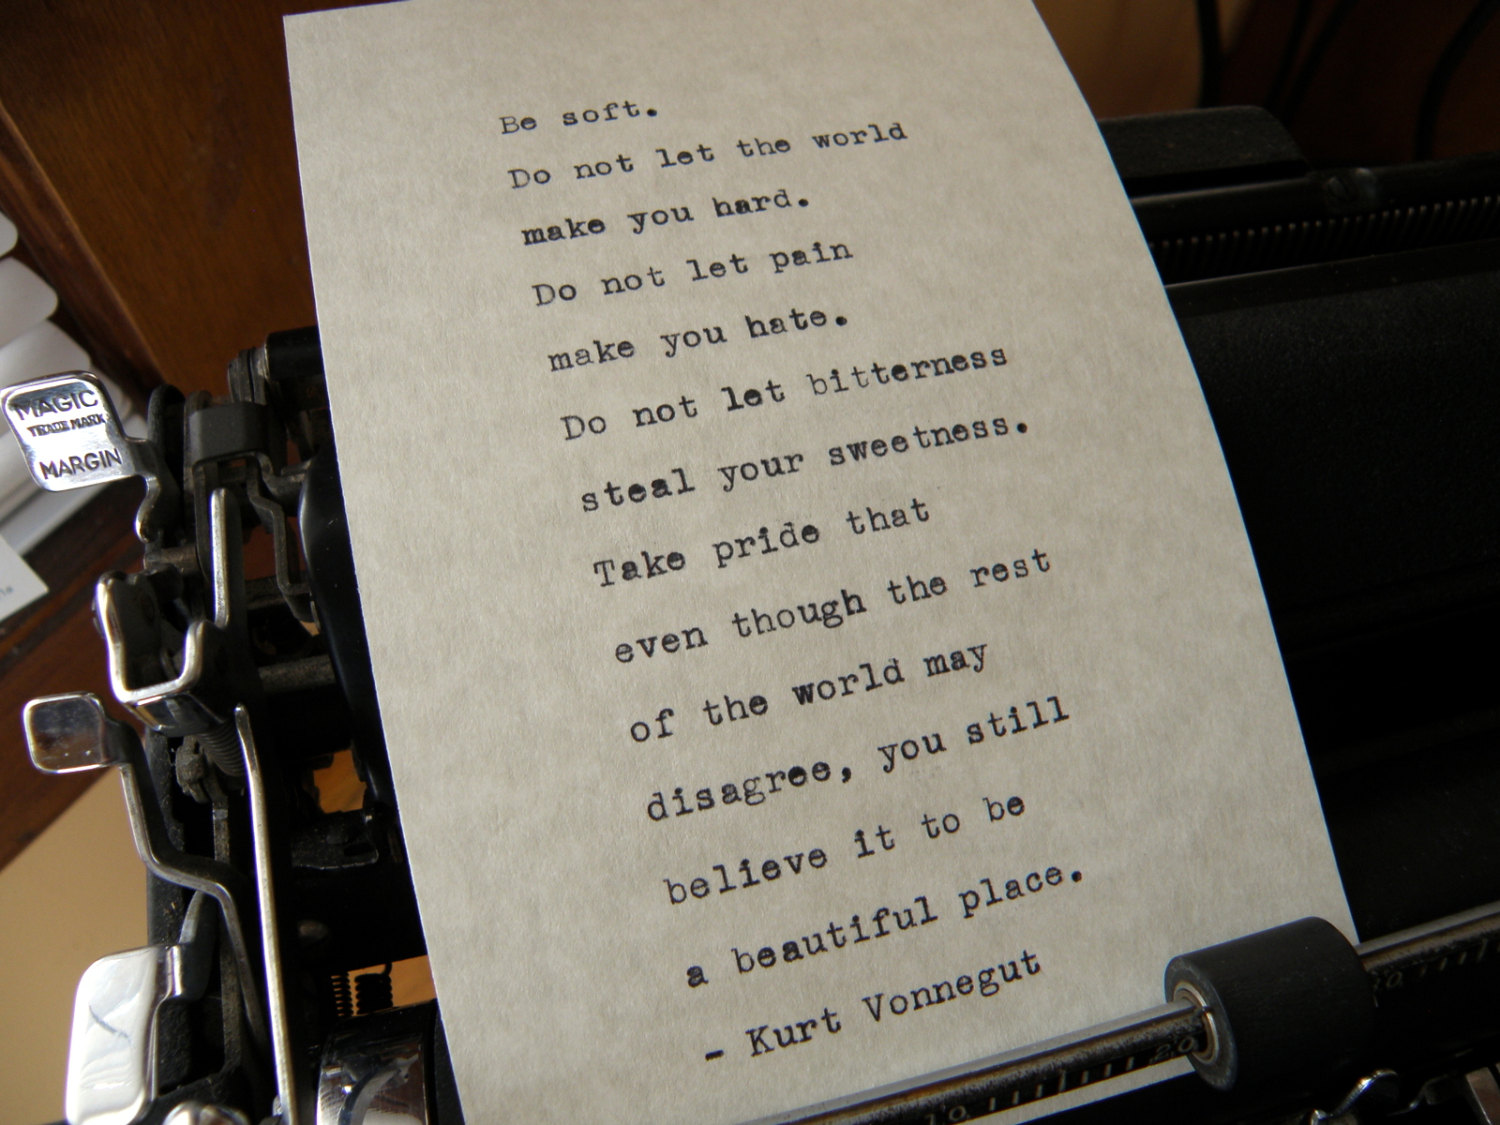 Be soft.
Do not let the world
make you hard.
Do not let pain
make you hate.
Do not let bitterness
steal your sweetness.
Take pride that
even though the rest
of the world may
disagree, you still
believe it to be
a beautiful place.
- Kurt Vonnegut
MAGIC
TRADE MARK
MARGIN
10
20